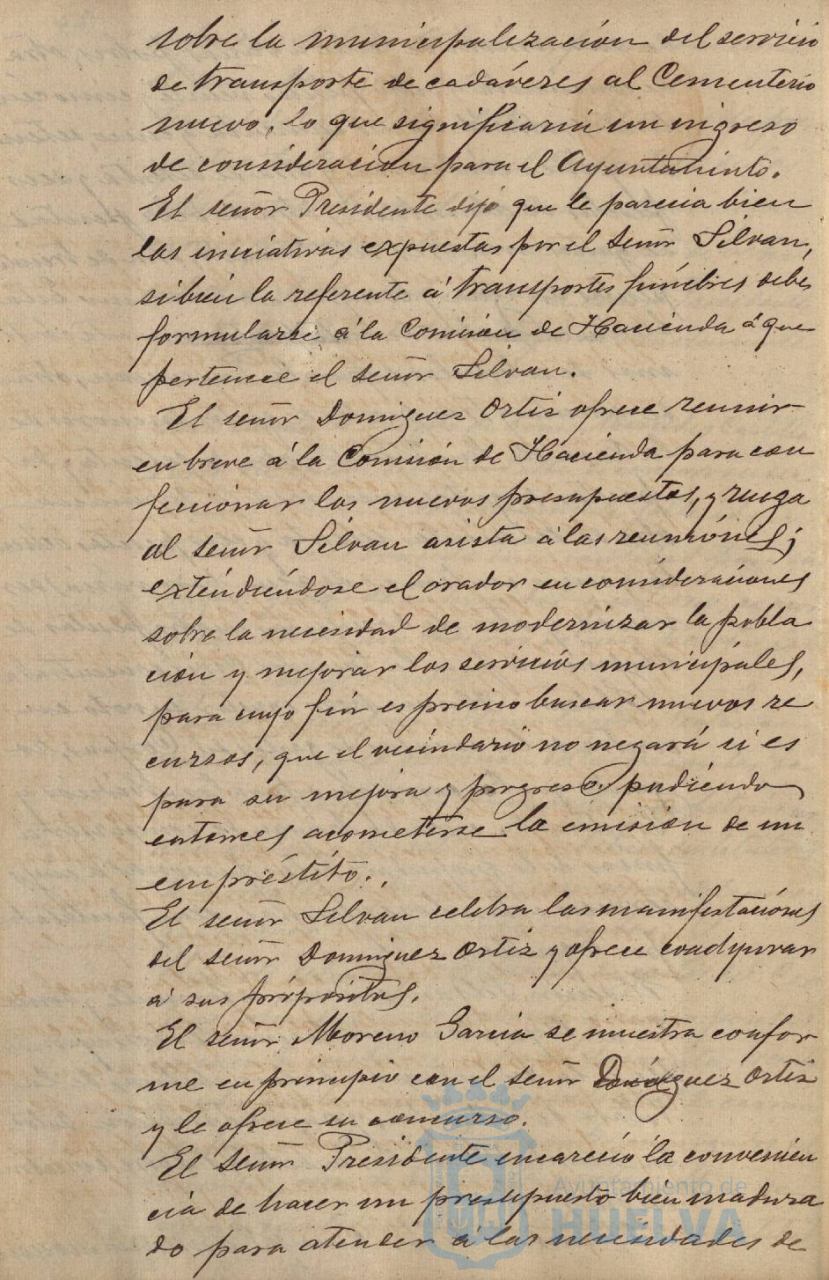 sobre la municipalización del servicio
de transporte de cadáveres al Cementerio
nuevo, lo que significaría un ingreso
de consideración para el Ayuntaminto.
El señor Presidente dijo que le parecia bien
las iniciativas expuestas por el señor Silvan,
si bien la referente á transportes fúnebres debe
formularse á la Comisión de Hacienda á que
pertenece el señor Silvan.
El señor Dominguez Ortiz ofrece reunir
en breve á la Comisión de Hacienda para con
feccionar los nuevos presupuestos, y ruega
al señor Silvan asista á las reuniónes;
exténdiéndose el orador en consideraciones
sobre la necesidad de modernizar la pobla
ción y mejorar los servicios municipales,
para cuyo fin es preciso buscar nuevos re
cursos, que el vecindario no negará si es
para su mejora y progreso, pudiendo
entonces acometerse la emisión de un
empréstito.
El señor Silvan celebra las manifestaciónes
del señor Dominguez Ortiz y ofrece coadyuvar
á sus própositos.
El señor Moreno Garcia se muestra confor
me en principio con el señor Domínguez Ortiz
y le ofrece su concurso.
El señor Presidente encareció la convenien
cia de hacer un presupuesto bien madura
do para atender á las necesidades de
Ayuntamiento de
HUELVA